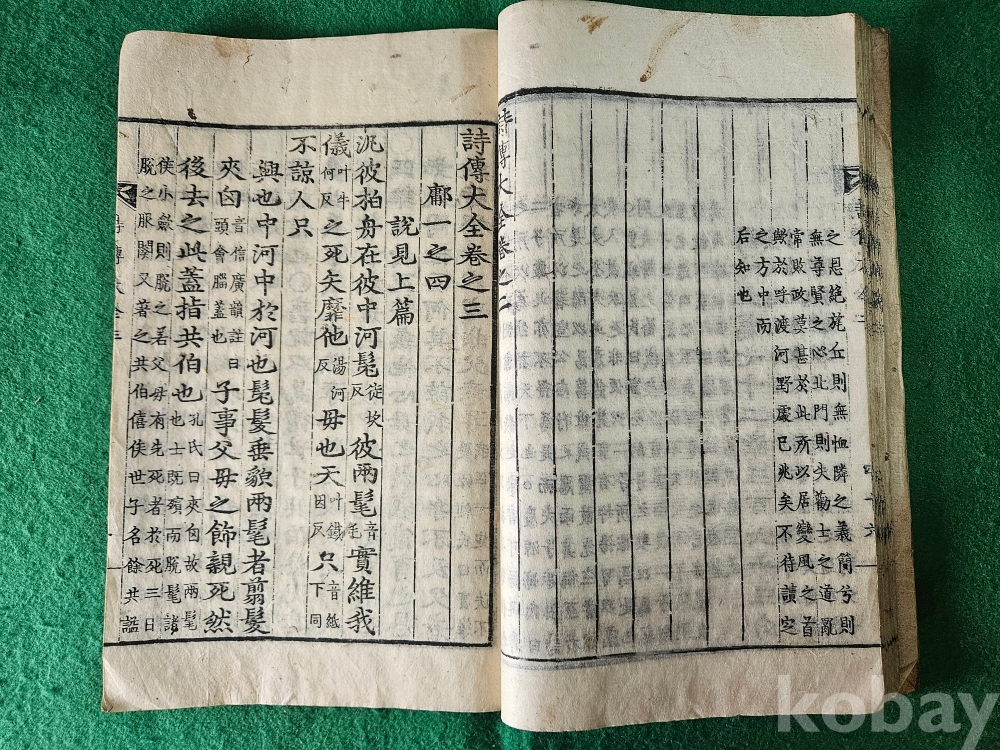 之恩絶旄丘則無恤隣之義簡兮則
無尊賢之心北門則失勸士之道亂
常敗政莫甚於此所以居變風之首
與於呼渡河野處已兆矣不待讀定
之方中而
后知也
詩傳大全卷之二
詩傳大全卷之三
鄘一之四
說見上篇
汎彼柏舟在彼中河髧徒坎反彼兩髦音毛實維我
儀叶牛何反之死矢靡他湯河反母也天叶鐵因反只音紙下同
不諒人只
興也中河中於河也髧髮垂貌兩髦者翦髮
夾囟音信廣韻註曰頭會腦蓋也子事父母之飾親死然
後去之此蓋指共伯也孔氏曰夾囟故兩髦也士既殯而脫髦諸
侯小斂則脫之若父母有先死者於死三日
脫之服闋又著之共伯僖侯世子名餘共謚